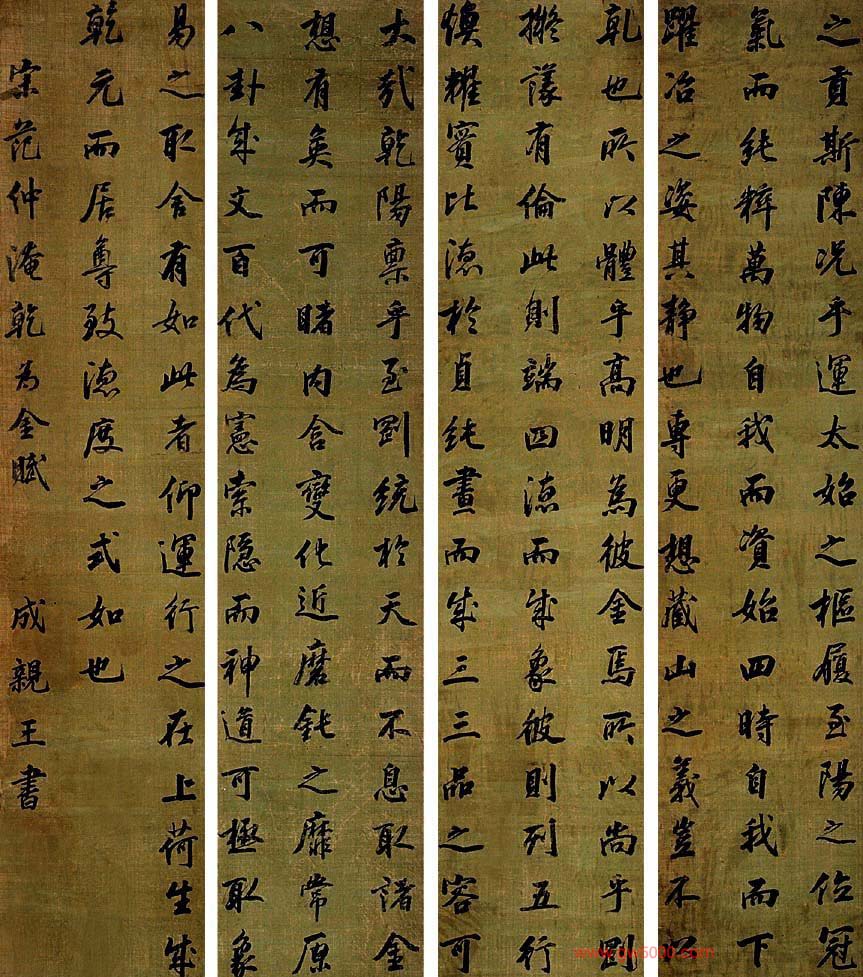 之貢斯陳況乎運太始之樞履至陽之位冠
氣而純粹萬物自我而資始四時自我而下
躍冶之姿其静也專更想藏山之義豈不以
乹也所以體乎高明為彼金焉所以尚乎剛
擬議有倫此則端四德而成象彼則列五行
煥耀賓比德於貞純畫而成三三品之容可
大哉乾陽禀乎至剛統於天而不息取諸金
想有奐而可睹内含變化近磨鈍之靡常原
八卦成文百代為憲索隱而神道可極取象
易之取舍有如此者仰運行之在上荷生成
乾元而居尊致德度之式如也
宋范仲淹乾為金賦 成親王書